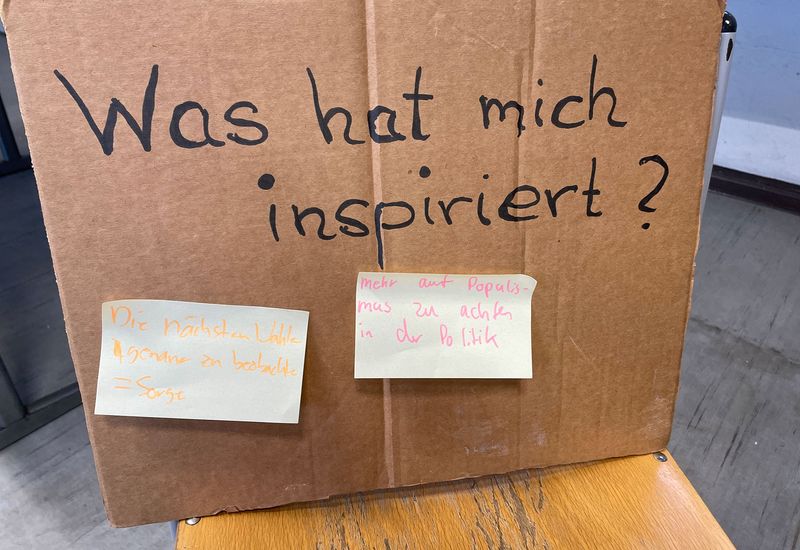 Was hat mich
inspiriert?
Die nächsten Wahle
genau zu beobachte
= Sorge
mehr auf Populis-
mus zu achten
in der Politik